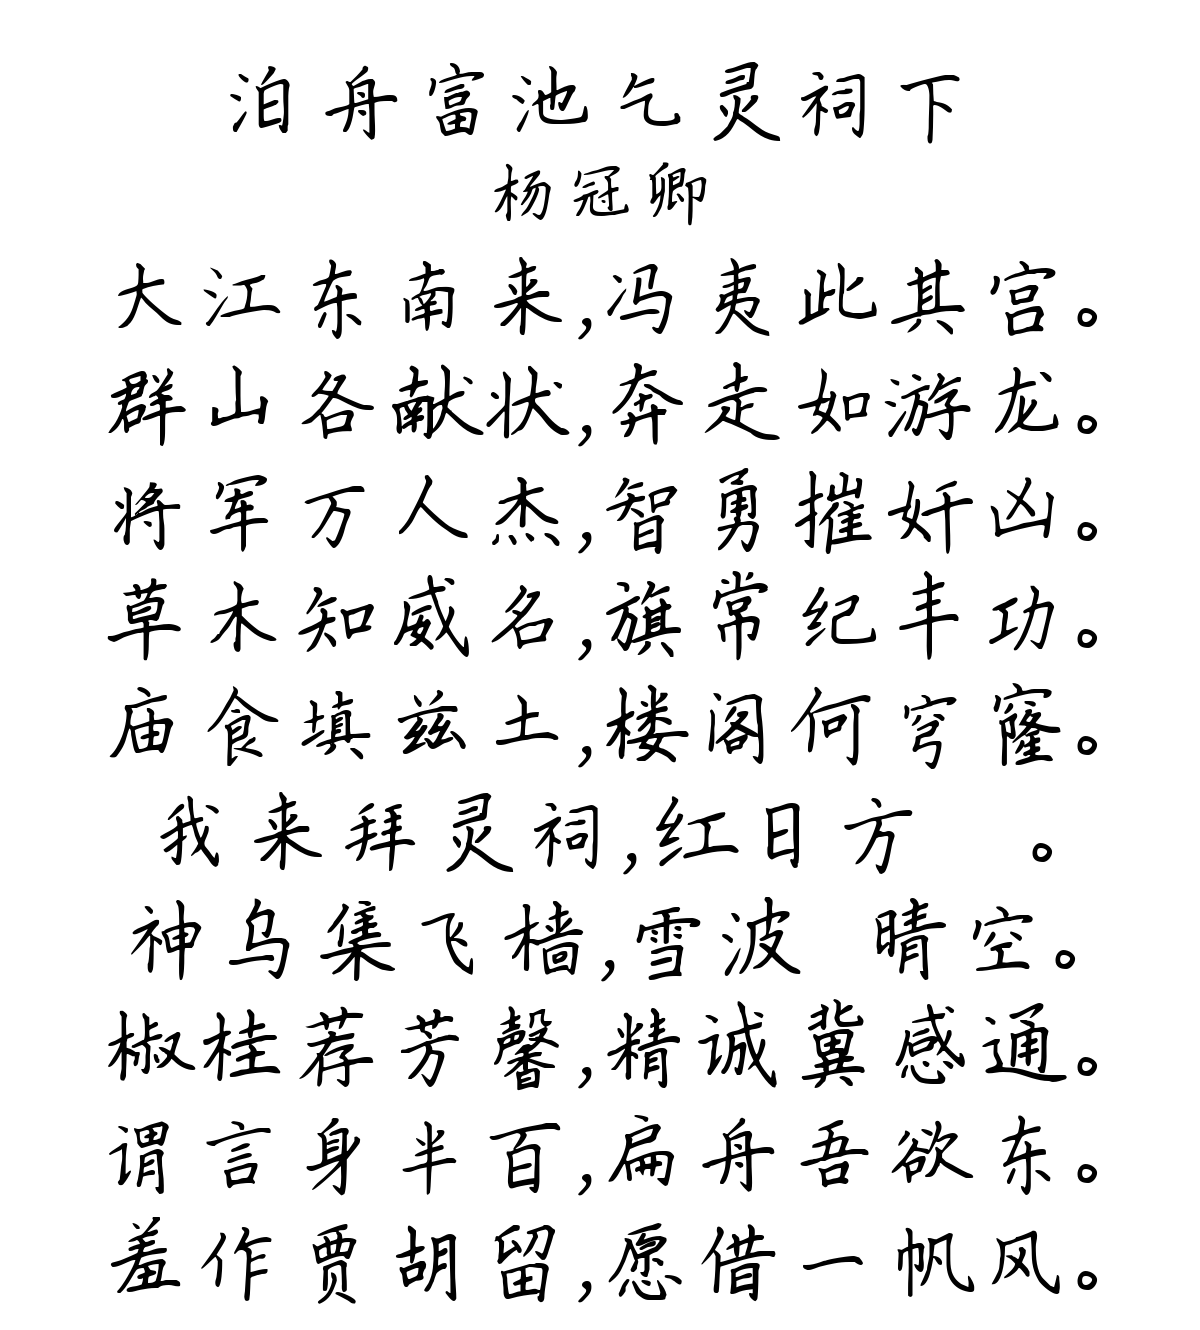 泊舟富池乞灵祠下
杨冠卿
大江东南来,冯夷此其宫。
群山各献状,奔走如游龙。
将军万人杰,智勇摧奸凶。
草木知威名,旗常纪丰功。
庙食填兹土,楼阁何穹窿。
我来拜灵祠,红日方 。
神乌集飞樯,雪波 晴空。
椒桂荐芳馨,精诚冀感通。
谓言身半百,扁舟吾欲东。
羞作贾胡留,愿借一帆风。